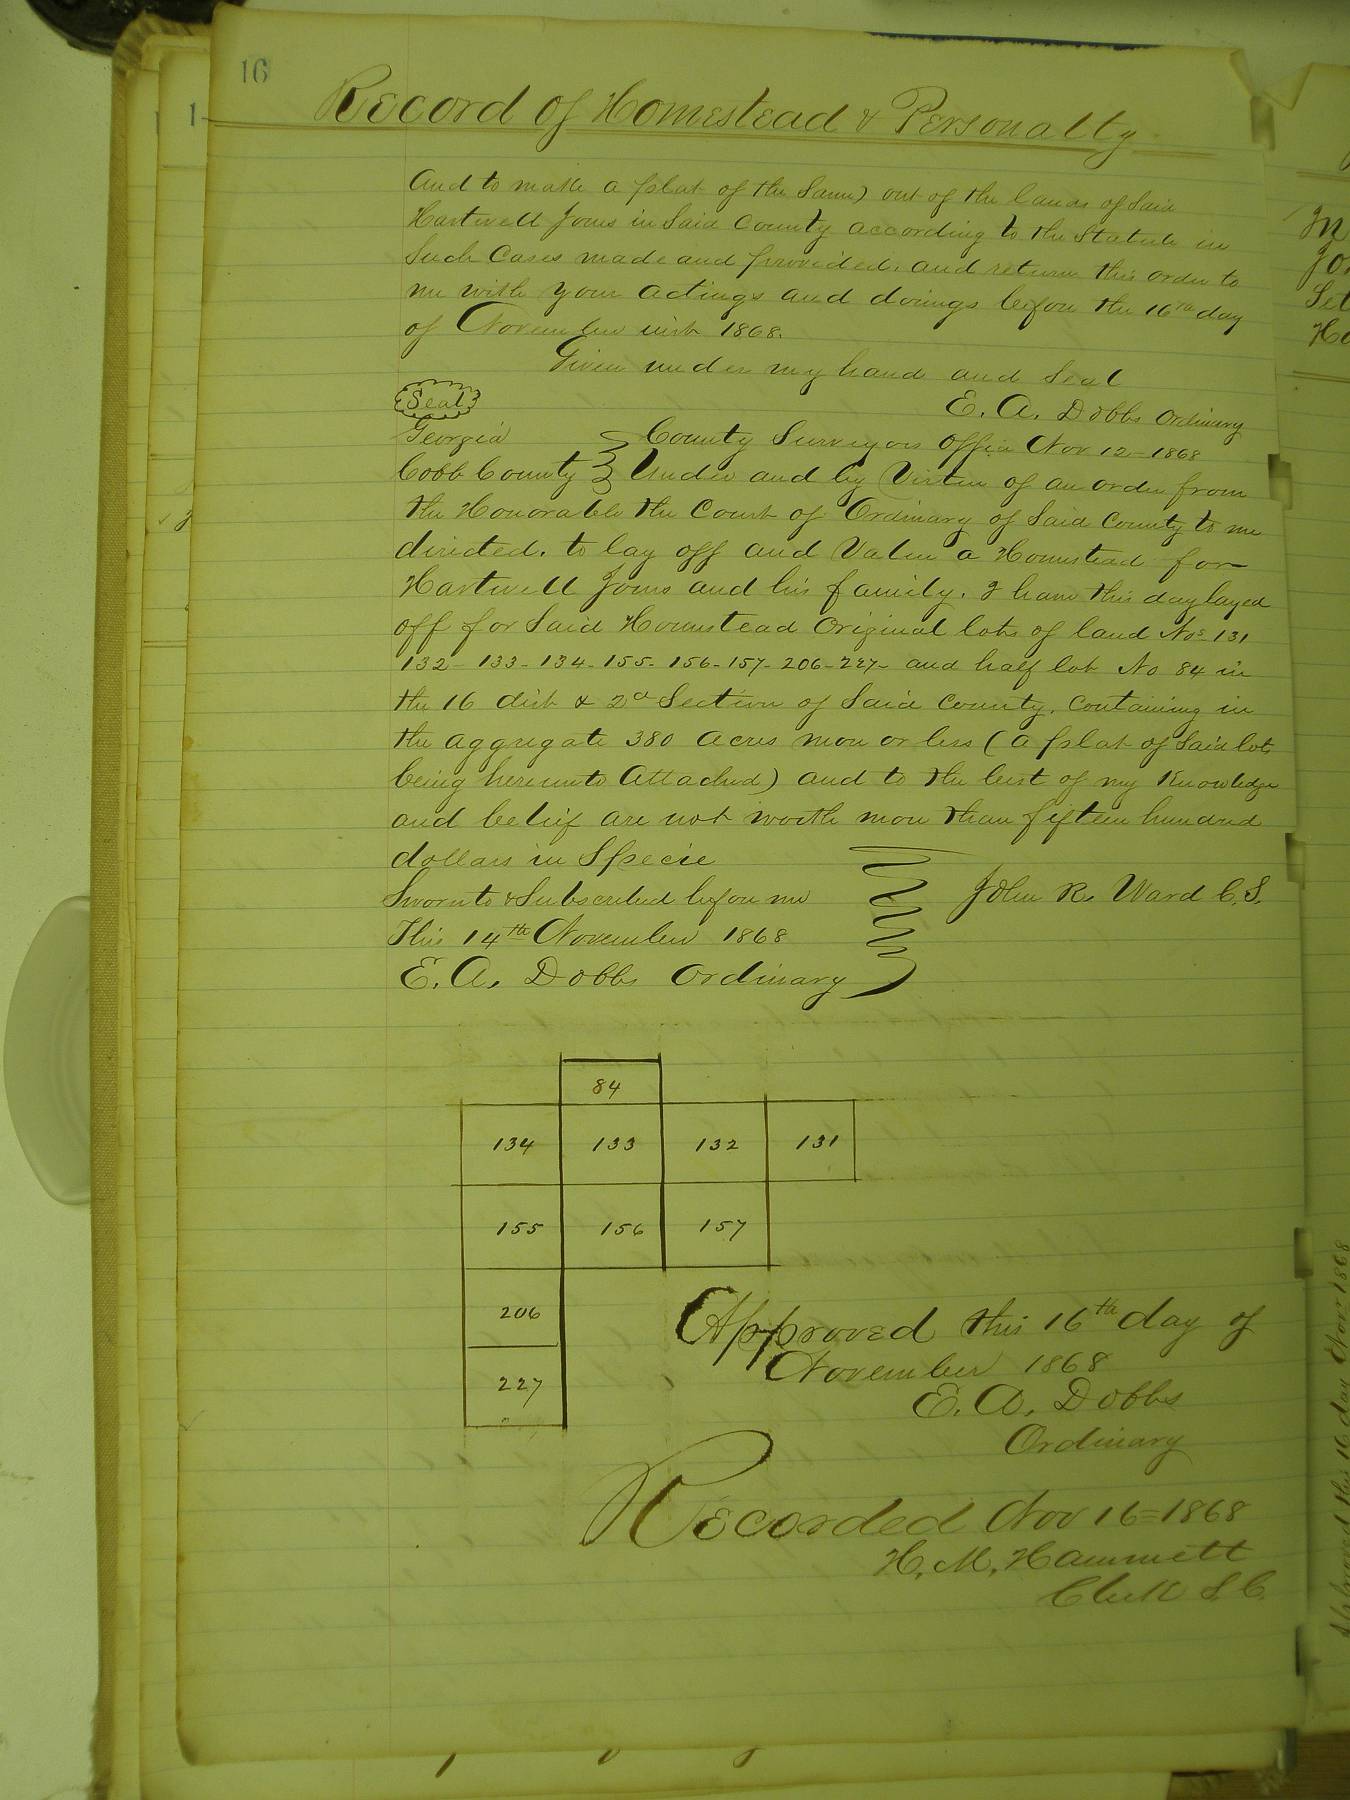 16
Record of Homestead & Personalty
And to make a plat of the Same) out of the lands of Said
Hartwell Jones in Said County according to the Statute in
Such Cases made and provided. and return this order to
me with your actings and doings before the 16th day
of November inst 1868.
Given under my hand and Seal
Seal
E. A. Dobbs Ordinary
Georgia
County Surveyors office Nov 12 - 1868
Cobb County } Under and by Virtue of an order from
the Honorable the Court of Ordinary of Said County to me
directed. to lay off and Value a Homestead for
Hartwell Jones and his family. I have this day layed
off for Said Homestead Original lots of land Nos 131
132 - 133 - 134 - 155 - 156 - 157 - 206 - 227 - and half lot No 84 in
the 16 dist & 2d Section of Said County. Containing in
the aggregate 380 acres more or less (a plat of Said lots
being hereunto Attached) and to the best of my Knowledge
and belief are not worth more than fifteen hundred
dollars in Specie
Sworn to & Subscribed before me
John R. Ward C.S.
This 14th November 1868
E. A. Dobbs Ordinary
84
134 133 132 131
155 156 157
206
227
Approved this 16th day of
November 1868
E. A. Dobbs
Ordinary
Recorded Nov 16 = 1868
H. M. Hammett
Clerk S. C.